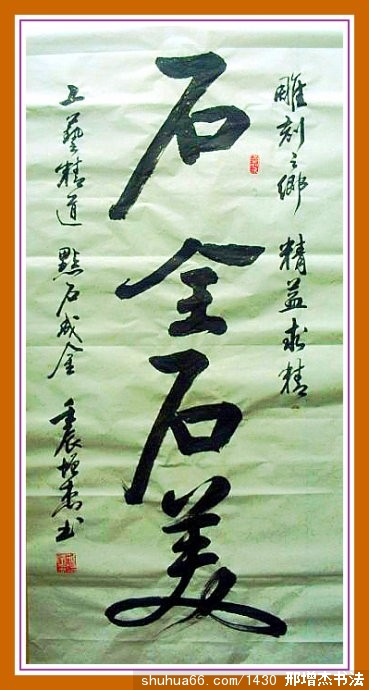 雕刻之鄉 精益求精
石全石美
工藝精道 點石成金 壬辰增杰书
shuhua66.com/1430 邢增杰书法